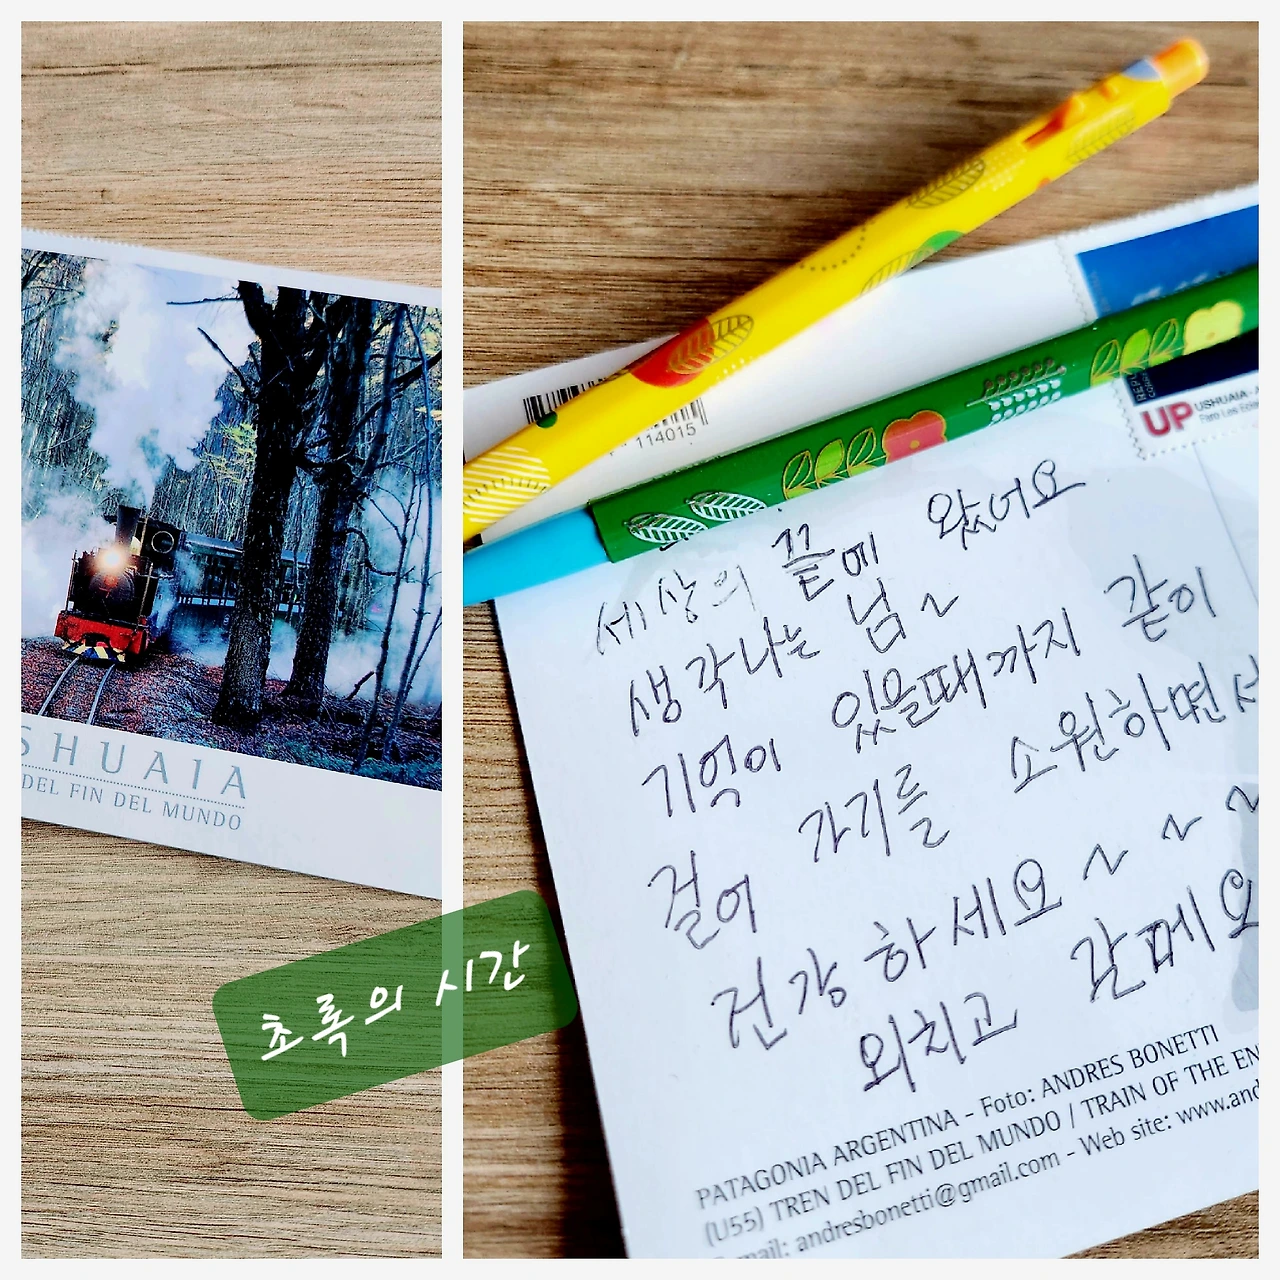 SHUAIA
DEL FIN DEL MUNDO
초록의 시간
114015
UP USHUAIA - A
세상의 끝에 왔어요
생각나는 넘~
기억이 있을때까지 같이
걸어 가기를 소원하면서
건강하세요~~~
외치고 갈께요
PATAGONIA ARGENTINA - Foto: ANDRES BONETTI
(U55) TREN DEL FIN DEL MUNDO / TRAIN OF THE EN
mail: andresbonetti@gmail.com - Web site: www.and